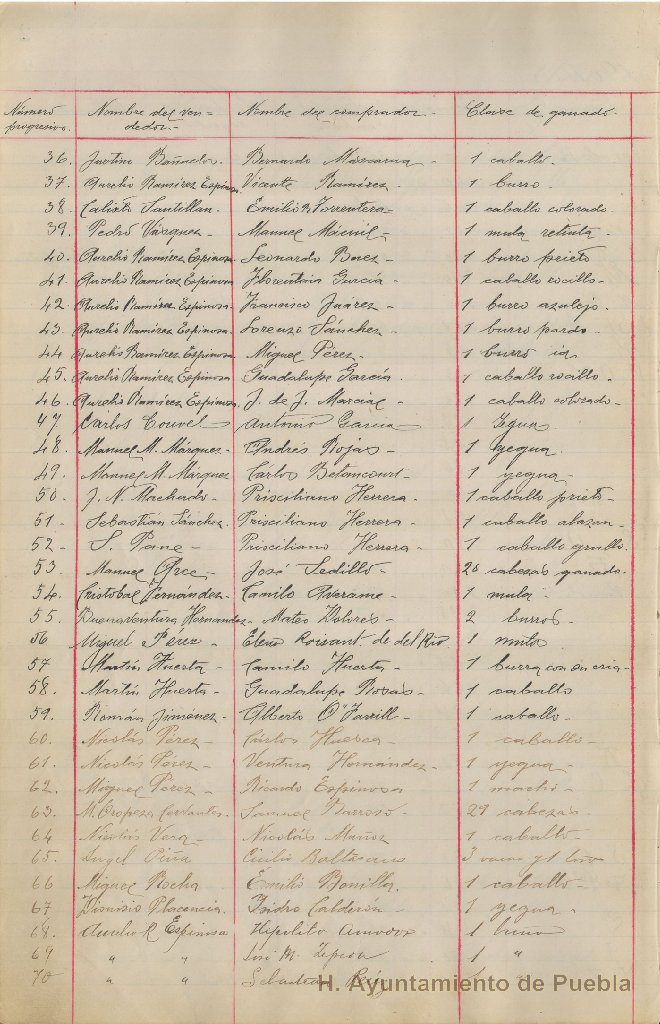 Número progresivo. Nombre del ven-dedor.- Nombre del comprador.- Clase de ganado.-
36. Justino Bañuelos. Bernardo Máscarua - 1 caballo.
37. Aurelio Ramírez Espinosa Vicente Ramírez. 1 burro.
38. Calixto Santillan. Emilio R. Torrentera - 1 caballo colorado.
39. Pedro Vázquez - Manuel - 1 mula retinta -
40. Aurelio Ramírez Espinosa Leonardo Baez - 1 burro prieto
41. Aurelio Ramírez Espinosa Florentain García - 1 caballo rocillo -
42 Aurelio Ramírez Espinosa. Francisco Juárez - 1 burro azulejo.
43. Aurelio Ramírez Espinosa. Lorenzo Sánchez - 1 burro pardo -
44 Aurelio Ramírez Espinosa - Miguel Pérez - 1 burro id -
45. Aurelio Ramírez Espinosa Guadalupe García. 1 caballo rocillo -
46. Aurelio Ramírez Espinosa. J. de J. Marcial - 1 caballo colorado -
47 Carlos Couvel - Antonio García - 1 Yegua -
48. Manuel M. Márquez - Andrés Rojas - 1 yegua -
49. Manuel M. Márquez Carlos Betancourt - 1 yegua -
50. J. N. Machado - Prisciliano Herrera. 1 caballo prieto -
51. Sebastián Sánchez. Prisciliano Herrera. 1 caballo alazan -
52 - S. Pane - Prisciliano Herrera - 1 caballo grullo.
53. Manuel Arce - José Sedillo - 26 cabezas ganado.
54. Cristobal Fernandez - Camilo Averame - 1 mula -
55. Buenaventura Hernandez - Mateo Dolores - 2 burros -
56 Miguel Pérez - Elena de del Río. 1 mula
57 Martín Huerta - Camilo Huerta - 1 burra con su cria -
58. Martín Huerta - Guadalupe Rosas - 1 caballo
59. Román Jiménez - Alberto O'Farrill - 1 caballo -
60. Nicolás Pérez - Carlos Huesca - 1 caballo -
61. Nicolás Pérez - Ventura Hernández - 1 yegua -
62. Miguel Pérez - Ricardo Espinosa 1 macho -
63. M. Oropeza Cervantes. Samuel Barroso - 29 cabezas -
64 Nicolás Vera - Nicolás Muñoz 1 caballo -
65. Angel Piña Cecilio Baltasans 3
66 Miguel Rocha Emilio Bonilla. 1 caballo -
67 Dionisio Placencia. Isidro Calderón - 1 yegua -
68. Aurelio R. Espinosa Hipolito 1
69 " " José M. Zepeda 1 "
70 " " Sebastian
H. Ayuntamiento de Puebla